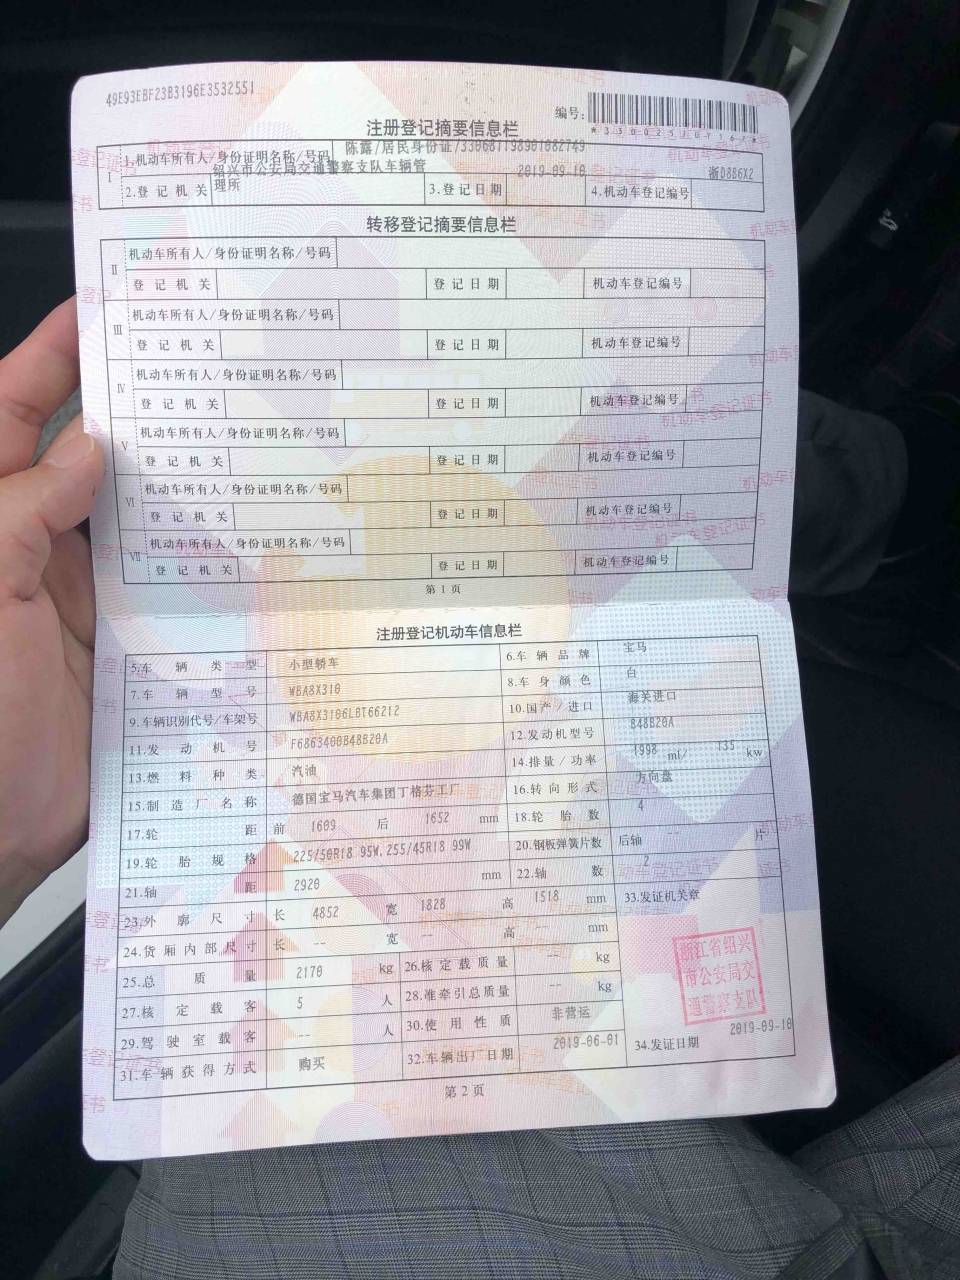 49E93EBF23B3196E3532551
编号:
注册登记摘要信息栏
I 1.机动车所有人/身份证明名称/号码 陈露/居民身份证/330681198901082749
2.登记机关 绍兴市公安局交通警察支队车辆管理所 3.登记日期 2019-09-10 4.机动车登记编号 浙D8B6X2
转移登记摘要信息栏
II 机动车所有人/身份证明名称/号码
登记机关 登记日期 机动车登记编号
III 机动车所有人/身份证明名称/号码
登记机关 登记日期 机动车登记编号
IV 机动车所有人/身份证明名称/号码
登记机关 登记日期 机动车登记编号
V 机动车所有人/身份证明名称/号码
登记机关 登记日期 机动车登记编号
VI 机动车所有人/身份证明名称/号码
登记机关 登记日期 机动车登记编号
VII 机动车所有人/身份证明名称/号码
登记机关 登记日期 机动车登记编号
第1页
注册登记机动车信息栏
5.车辆类型 小型轿车 6.车辆品牌 宝马
7.车辆型号 WBA8X310 8.车身颜色 白
9.车辆识别代号/车架号 WBA8X3106LBT66212 10.国产/进口 海关进口
11.发动机号 F6863400B48B20A 12.发动机型号 B48B20A
13.燃料种类 汽油 14.排量/功率 1998 ml/ 135 kw
15.制造厂名称 德国宝马汽车集团丁格芬工厂 16.转向形式 方向盘
17.轮距 前 1609 后 1652 mm 18.轮胎数 4
19.轮胎规格 225/50R18 95W,255/45R18 99W 20.钢板弹簧片数 后轴 -- 片
21.轴距 2920 mm 22.轴数 2
23.外廓尺寸 长 4852 宽 1828 高 1518 mm 33.发证机关章
24.货厢内部尺寸 长 -- 宽 -- 高 -- mm
25.总质量 2170 kg 26.核定载质量 -- kg
27.核定载客 5 人 28.准牵引总质量 -- kg
29.驾驶室载客 -- 人 30.使用性质 非营运
31.车辆获得方式 购买 32.车辆出厂日期 2019-06-01 34.发证日期 2019-09-10
浙江省绍兴
市公安局交
通警察支队
第2页